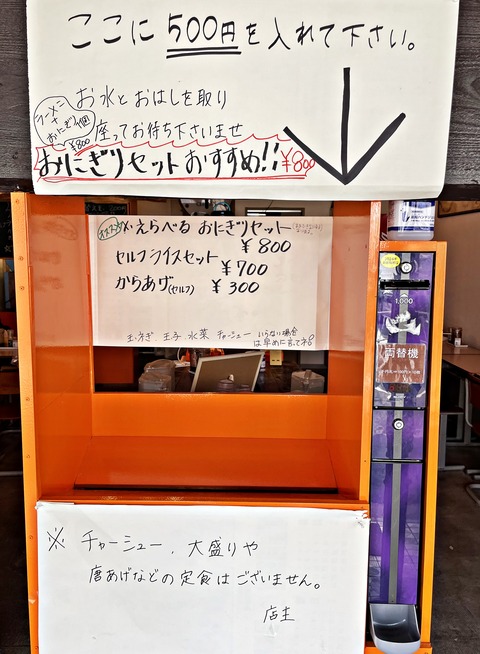 ここに500円を入れて下さい。
お水とおはしを取り
座ってお待ち下さいませ
ラーメン
+
おにぎり1個
¥800
おにぎりセットおすすめ!! ¥800
オススメ
※えらべる おにぎりセット
¥800
セルフライスセット
¥700
からあげ(セルフ) ¥300
玉ねぎ 玉子 水菜 チャーシュー いらない場合
は早めに言ってネ
1,000
両替機
※ チャーシュー、大盛りや
唐あげなどの定食はございません。
店主